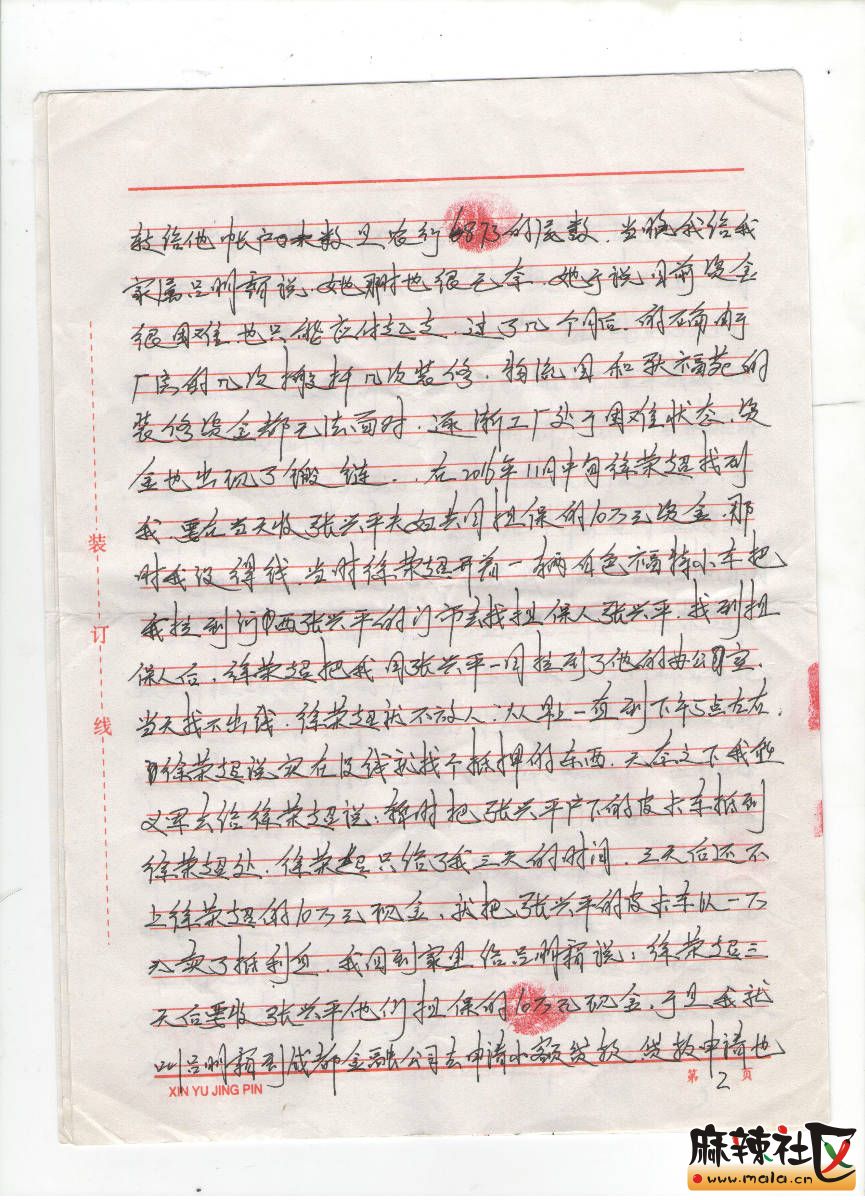 转给他帐户尾数是农行6873的尾数。当晚我给我
家属吕明霜说。她那时也很无奈。她于说目前资金
很困难也只能应付起走。过了几个月后。的不角由于
厂房的几次搬拆几次装修。翰流园和歌福苑的
装修资金都无法面对。逐渐工厂处于困难状态。资
金也出现了锻链。. 在2016年11月中旬徐荣超找到
我。要在当天收张兴平夫妇共同担保的10万元资金。那
时我没得钱。当时徐荣超开着一辆白色福特小车把
我拉到河西张兴平的门市去找担保人张兴平。找到担
保人后。徐荣超把我同张兴平一同拉到了他的办公室。
当天找不出钱。徐荣超就不放人:从早上一直到下午5点左右。
徐荣超说实在没钱就找个抵押的东西。无奈之下我
又
徐荣超处。徐荣超只给了我三天的时间。三天后还不
上徐荣超的10万元现金。就把张兴平的皮卡车以一万
元卖了抵利息。我回到家里给吕明霜说:徐荣超三
天后要收张兴平他们担保的10万元现金。于是我就
叫吕明霜到成都金融公司去申请小额贷款。贷款申请也
XIN YU JING PIN
第 2 页
装
订
线
麻辣社区
www.mala.cn